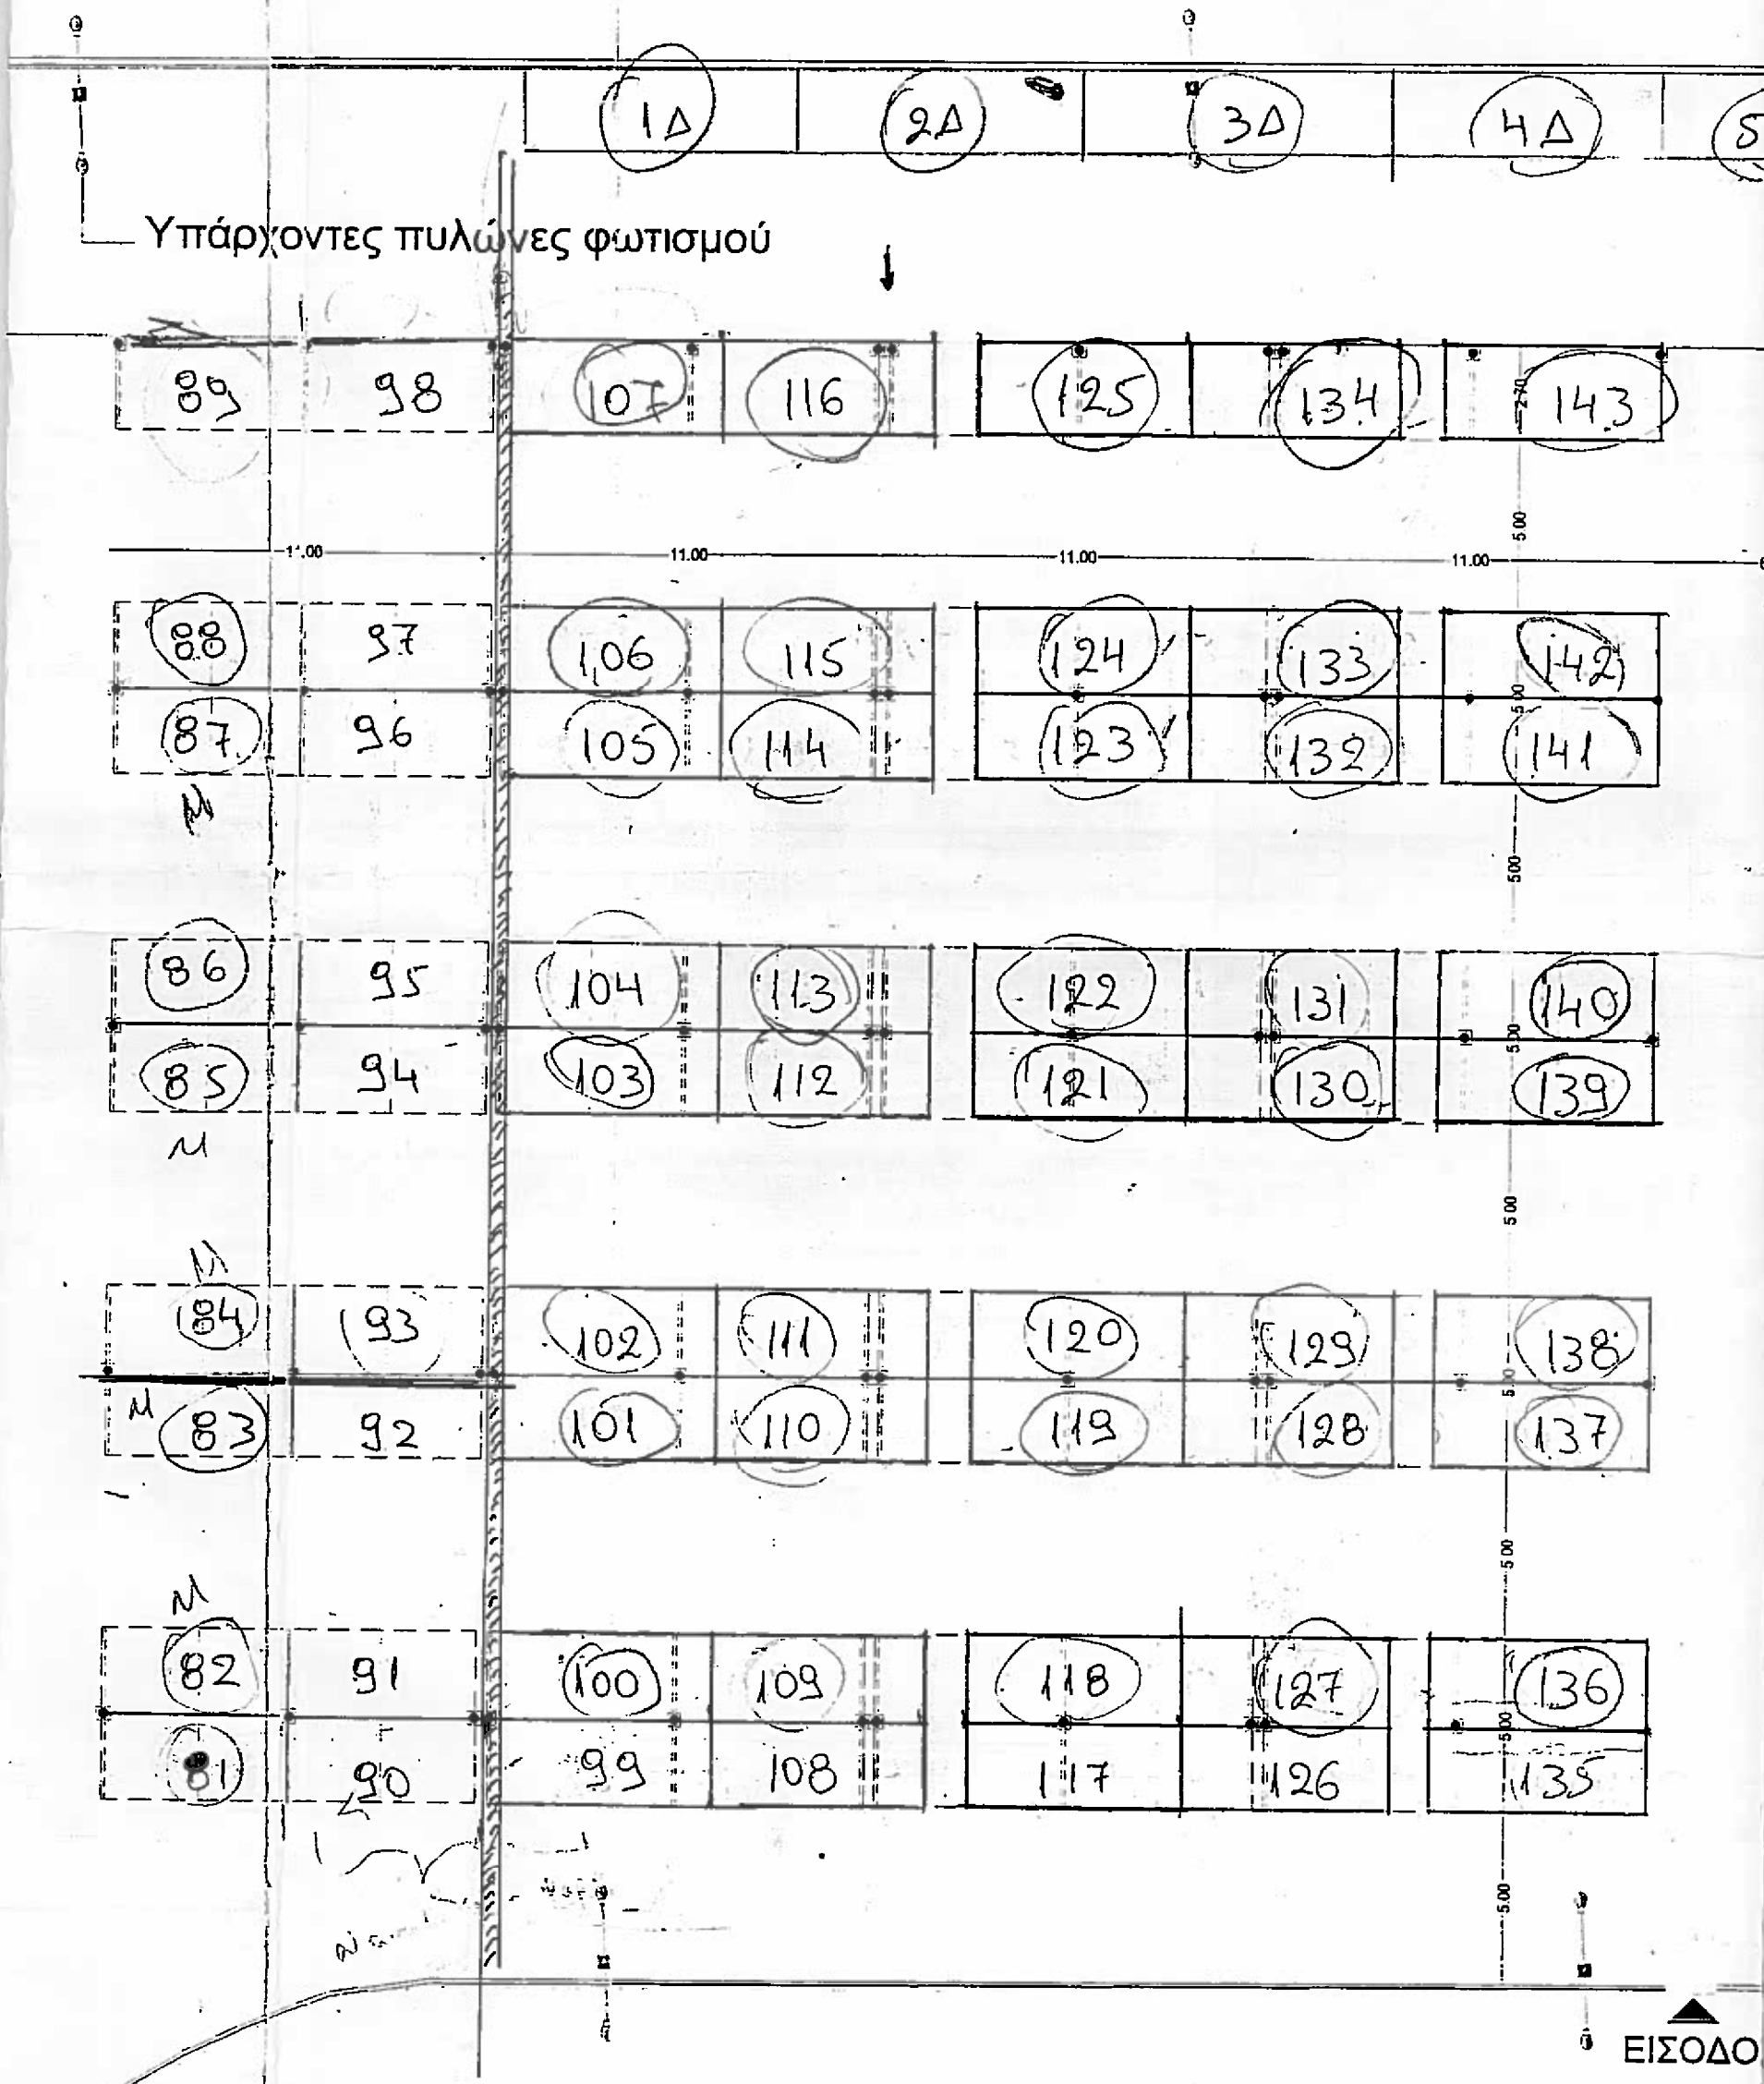 1Δ 2Δ 3Δ 4Δ 5
Υπάρχοντες πυλώνες φωτισμού
89 98 107 116 125 134 143
2.70
5.00
11.00 11.00 11.00 11.00
88 97 106 115 124 133 142
5.00
87 96 105 114 123 132 141
Μ
5.00
86 95 104 113 122 131 140
5.00
85 94 103 112 121 130 139
Μ
5.00
Μ
84 93 102 111 120 129 138
5.00
Μ 83 92 101 110 119 128 137
5.00
Μ
82 91 100 109 118 127 136
5.00
81 90 99 108 117 126 135
5.00
ΕΙΣΟΔΟ